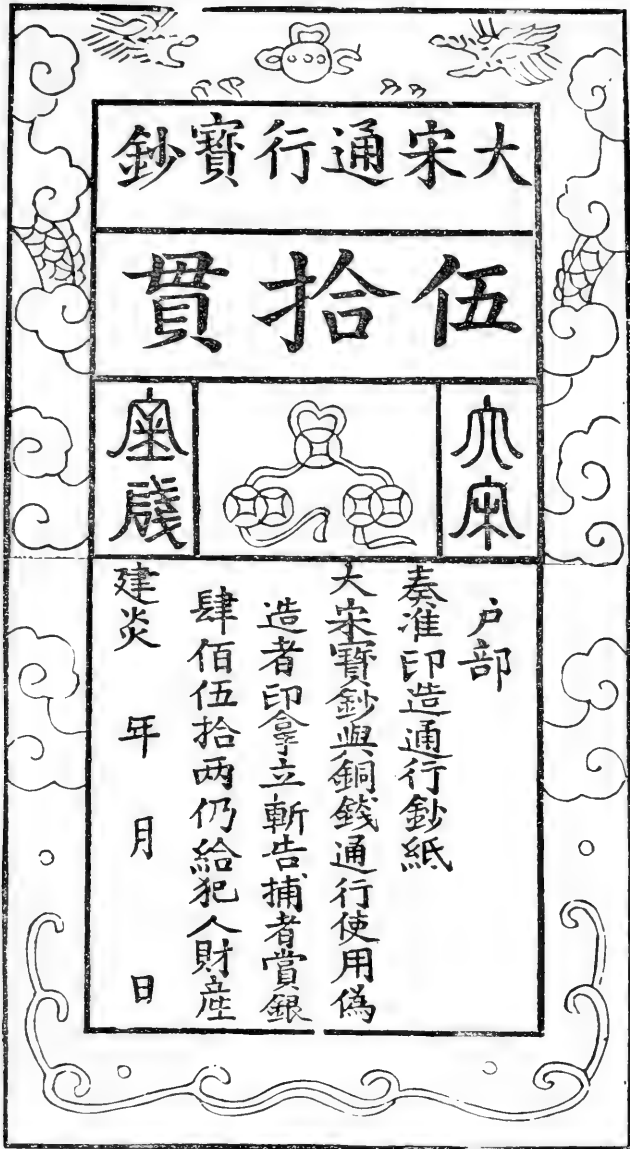 大宋通行寶鈔
伍拾貫
大宋
户部
奏准印造通行鈔紙
大宋寶鈔與銅錢通行使用偽
造者印拿立斬告捕者賞銀
肆佰伍拾两仍給犯人財産
建炎 年 月 日